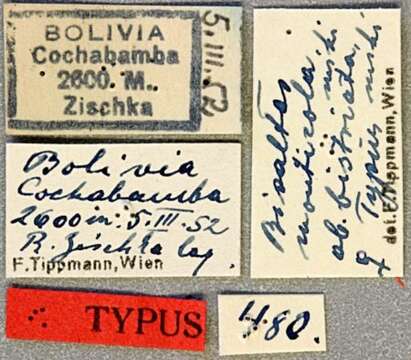 BOLIVIA
Cochabamba
2600. M..
Zischka
5.III.52
Bolivia
Cochabamba
2600m. 5.III.52
R. Zischka leg
F.Tippmann,Wien
Bisaltes
monticola,
ab. bistriata,
Typus
det.F.Tippmann,Wien
TYPUS
480.